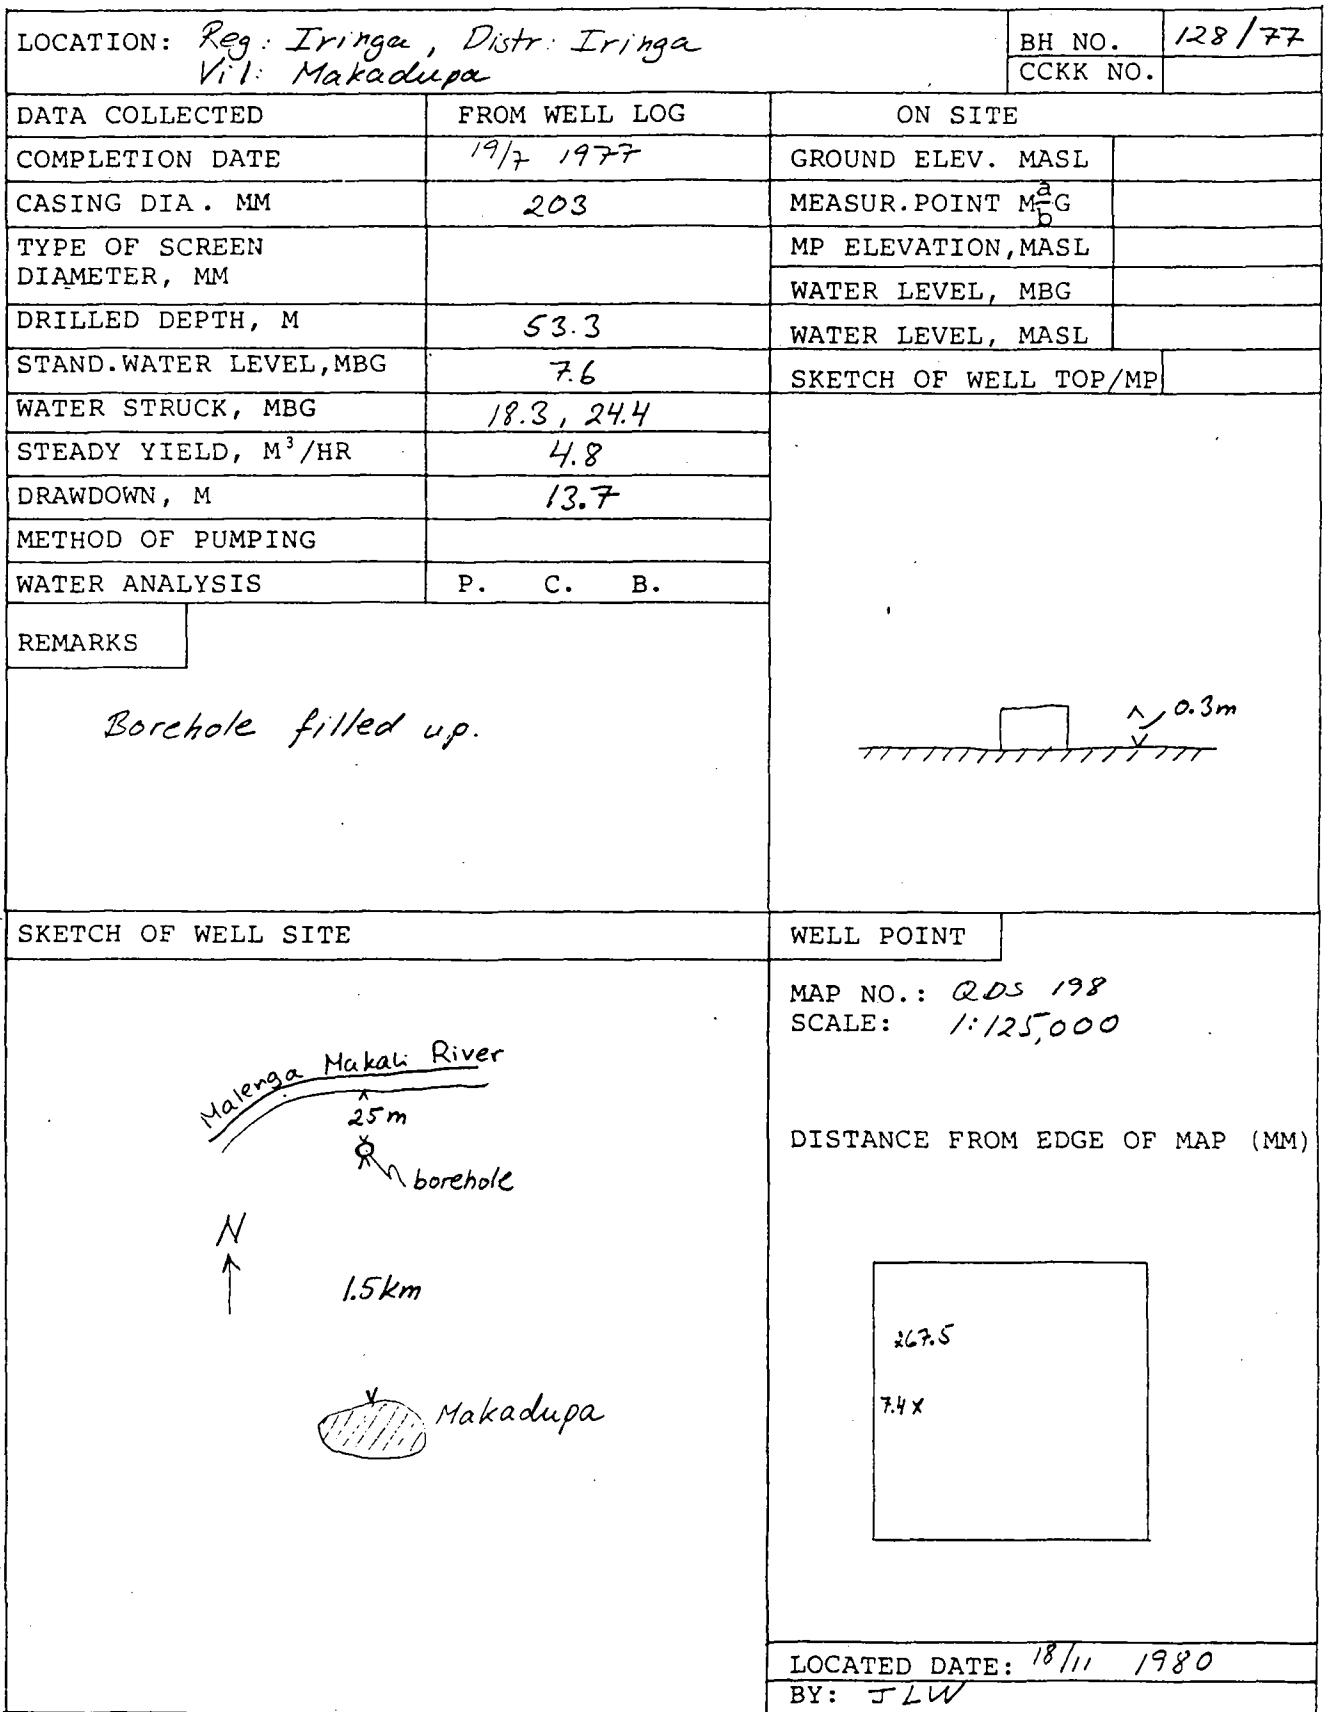 LOCATION: Reg: Iringa, Distr: Iringa
Vil: Makadupa
BH NO. 128/77
CCKK NO.
DATA COLLECTED FROM WELL LOG
COMPLETION DATE 19/7 1977
CASING DIA. MM 203
TYPE OF SCREEN
DIAMETER, MM
DRILLED DEPTH, M 53.3
STAND.WATER LEVEL,MBG 7.6
WATER STRUCK, MBG 18.3, 24.4
STEADY YIELD, M³/HR 4.8
DRAWDOWN, M 13.7
METHOD OF PUMPING
WATER ANALYSIS P. C. B.
REMARKS
Borehole filled up.
ON SITE
GROUND ELEV. MASL
MEASUR.POINT M a/b G
MP ELEVATION,MASL
WATER LEVEL, MBG
WATER LEVEL, MASL
SKETCH OF WELL TOP/MP
0.3m
SKETCH OF WELL SITE
Malenga Makali River
25m
borehole
N
1.5km
Makadupa
WELL POINT
MAP NO.: QDS 198
SCALE: 1:125,000
DISTANCE FROM EDGE OF MAP (MM)
267.5
7.4 x
LOCATED DATE: 18/11 1980
BY: JLW